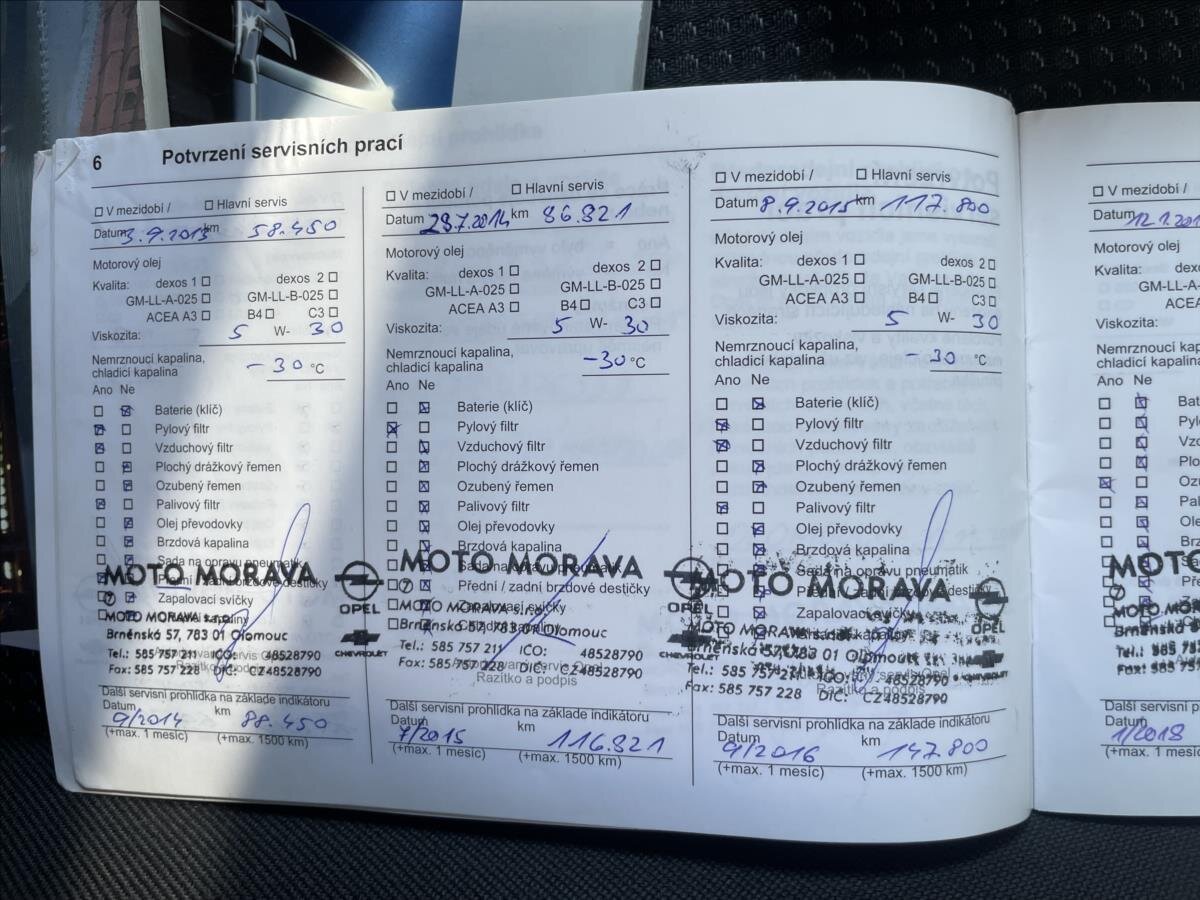 6 Potvrzení servisních prací
V mezidobí / Hlavní servis
Datum 3.9.2013 km 58.450
Motorový olej
Kvalita: dexos 1 dexos 2
GM-LL-A-025 GM-LL-B-025
ACEA A3 B4 C3
Viskozita: 5 W- 30
Nemrznoucí kapalina,
chladicí kapalina -30 °C
Ano Ne
Baterie (klíč)
Pylový filtr
Vzduchový filtr
Plochý drážkový řemen
Ozubený řemen
Palivový filtr
Olej převodovky
Brzdová kapalina
Sada na opravu pneumatik
MOTO MORAVA
Přední / zadní brzdové destičky
7 Zapalovací svíčky
OPEL
MOTO MORAVA
Brněnská 57, 783 01 Olomouc
CHEVROLET
Tel.: 585 757 211 IČO: 48528790
Fax: 585 757 228 DIČ: CZ48528790
Další servisní prohlídka na základe indikátoru
Datum 9/2014 km 88.450
(+max. 1 mesíc) (+max. 1500 km)
V mezidobí / Hlavní servis
Datum 28.7.2014 km 86.821
Motorový olej
Kvalita: dexos 1 dexos 2
GM-LL-A-025 GM-LL-B-025
ACEA A3 B4 C3
Viskozita: 5 W- 30
Nemrznoucí kapalina,
chladicí kapalina -30 °C
Ano Ne
Baterie (klíč)
Pylový filtr
Vzduchový filtr
Plochý drážkový řemen
Ozubený řemen
Palivový filtr
Olej převodovky
Brzdová kapalina
MOTO MORAVA
Sada na opravu pneumatik
7 Přední / zadní brzdové destičky
OPEL
MOTO MORAVA s.r.o.
Zapalovací svíčky
Brněnská 57, 783 01 Olomouc
CHEVROLET
Tel.: 585 757 211 IČO: 48528790
Fax: 585 757 228 DIČ: CZ48528790
Razítko a podpis
Další servisní prohlídka na základe indikátoru
Datum 7/2015 km 116.821
(+max. 1 mesíc) (+max. 1500 km)
V mezidobí / Hlavní servis
Datum 8.9.2015 km 117.800
Motorový olej
Kvalita: dexos 1 dexos 2
GM-LL-A-025 GM-LL-B-025
ACEA A3 B4 C3
Viskozita: 5 W- 30
Nemrznoucí kapalina,
chladicí kapalina -30 °C
Ano Ne
Baterie (klíč)
Pylový filtr
Vzduchový filtr
Plochý drážkový řemen
Ozubený řemen
Palivový filtr
Olej převodovky
Brzdová kapalina
Sada na opravu pneumatik
MOTO MORAVA
Přední / zadní brzdové destičky
Zapalovací svíčky
OPEL
MOTO MORAVA
Brněnská 57, 783 01 Olomouc
CHEVROLET
Tel.: 585 757 211 IČO: 48528790
Fax: 585 757 228 DIČ: CZ48528790
Razítko a podpis
Další servisní prohlídka na základe indikátoru
Datum 9/2016 km 147.800
(+max. 1 mesíc) (+max. 1500 km)
V mezidobí /
Datum
Motorový olej
Kvalita: dexos
GM-LL-A-
ACEA
Viskozita:
Nemrznoucí kap
chladicí kapalina
Ano Ne
Bat
Pyl
Vzd
Plo
Ozu
Pal
Ole
Brz
MOTO
Sad
Pře
Zap
MOTO MORA
Brněnská
Tel.: 585
Fax: 585
Další servisní pro
Datum
1/2018
(+max. 1 mesíc)